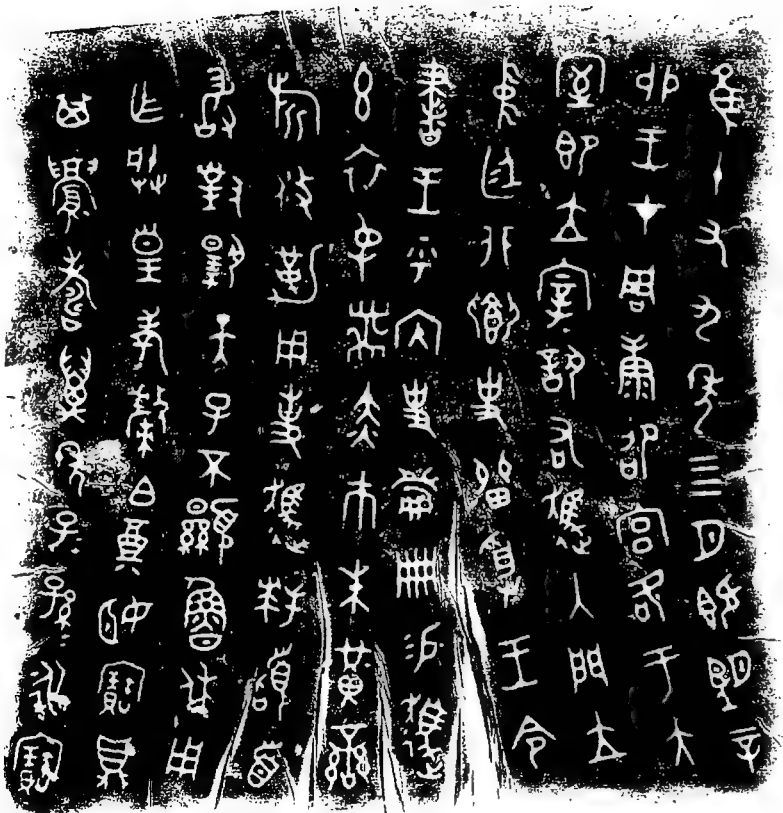 隹十又九年四月既望辛
卯王才周康卲宮各于大
室即立宰訊右趞入門立
中廷北鄉史留受王令
書王乎內史𠭰冊易趞
玄衣屯黹赤市朱黃䜌
旂攸勒用事趞拜𩒨首
敢對揚天子不顯魯休用
乍朕皇考𩰬白奠姬寶鼎
其眉壽萬年子子孫孫永寶